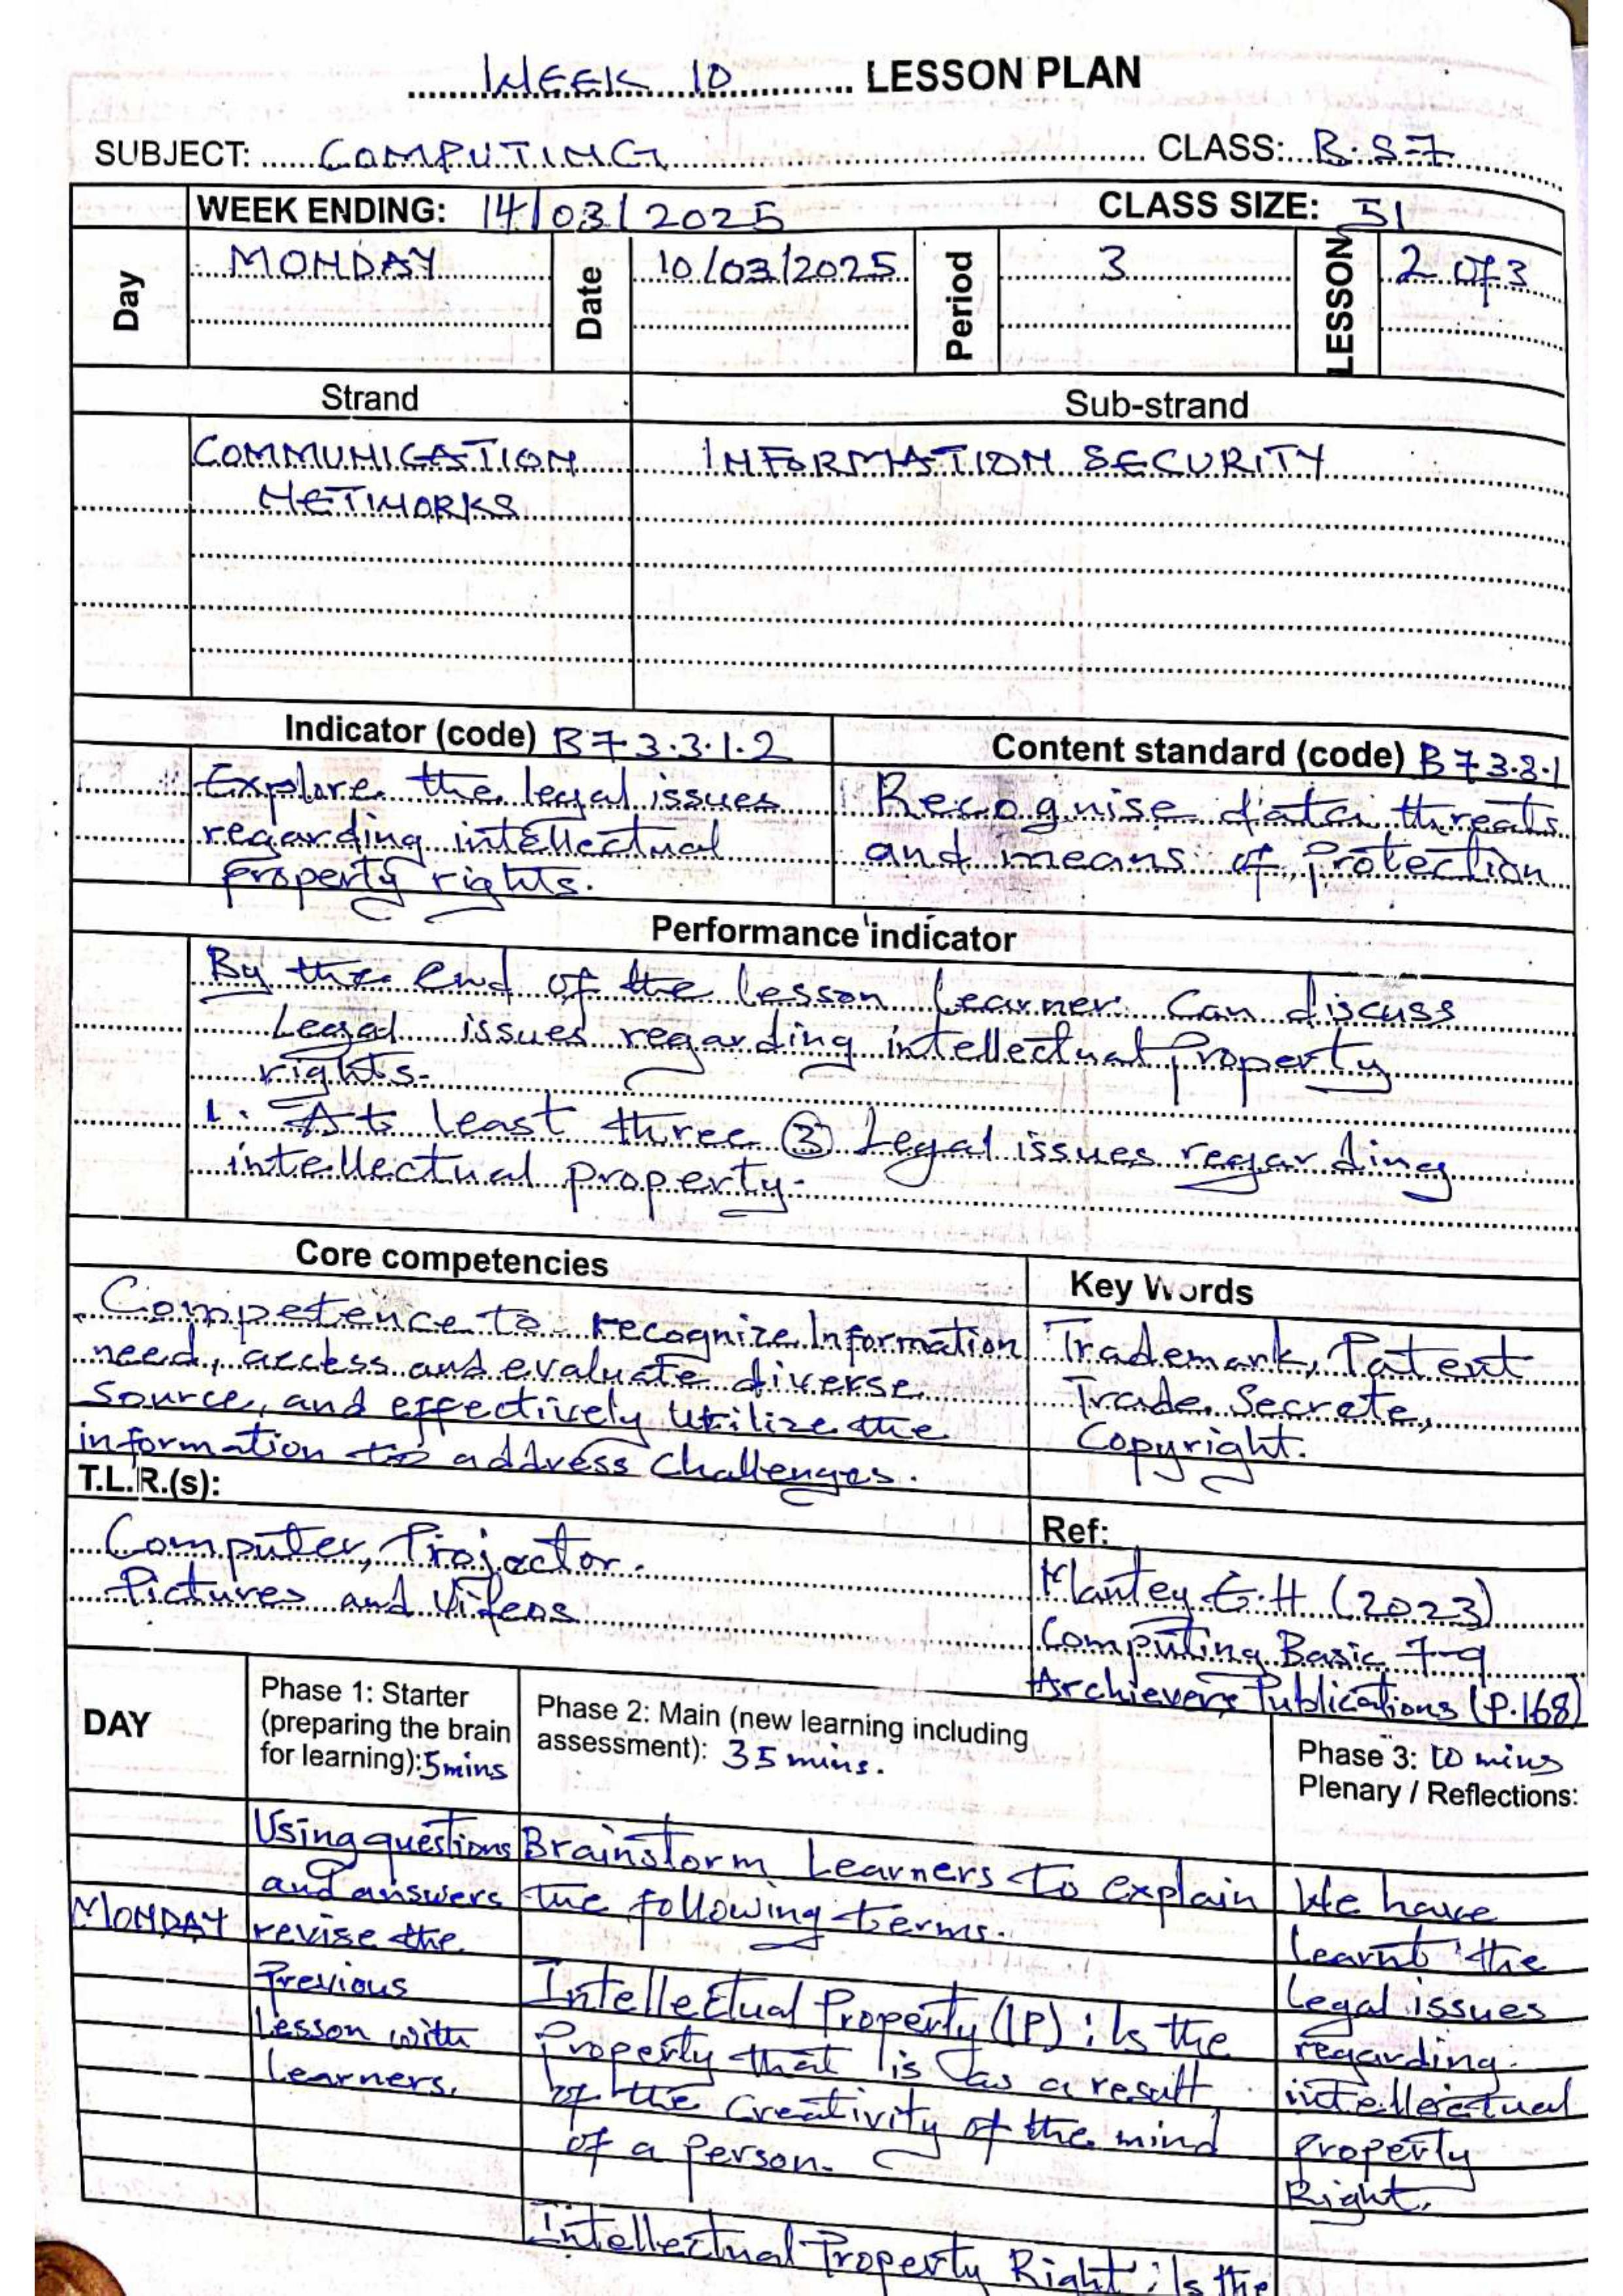 WEEK 10 LESSON PLAN
SUBJECT: COMPUTING CLASS: B.S7
WEEK ENDING: 14/03/2025 CLASS SIZE: 51
Day MONDAY Date 10/03/2025 Period 3 LESSON 2 of 3
Strand Sub-strand
COMMUNICATION INFORMATION SECURITY
NETWORKS
Indicator (code) B7 3.3.1.2 Content standard (code) B7 3.3.1
Explore the legal issues
regarding intellectual
property rights.
Recognise data threats
and means of protection
Performance indicator
By the end of the lesson learner can discuss
Legal issues regarding intellectual Property
rights.
1. At least three (3) Legal issues regarding
intellectual property.
Core competencies
Competence to recognize Information
need, access and evaluate diverse
Source, and effectively utilize the
information to address challenges.
Key Words
Trademark, Patent
Trade Secrete,
Copyright.
T.L.R.(s):
Computer, Projector.
Pictures and Videos
Ref:
Mantey E.H (2023)
Computing Basic 7-9
Archievers Publications (P.168)
DAY
Phase 1: Starter
(preparing the brain
for learning): 5mins
Phase 2: Main (new learning including
assessment): 35 mins.
Phase 3: 10 mins
Plenary / Reflections:
MONDAY
Using questions
and answers
revise the
Previous
Lesson with
Learners.
Brainstorm Learners to explain
the following terms.
Intellectual Property (IP): Is the
Property that is as a result
of the Creativity of the mind
of a person.
Intellectual Property Right: Is the
We have
learnt the
legal issues
regarding
intellectual
Property
Right.